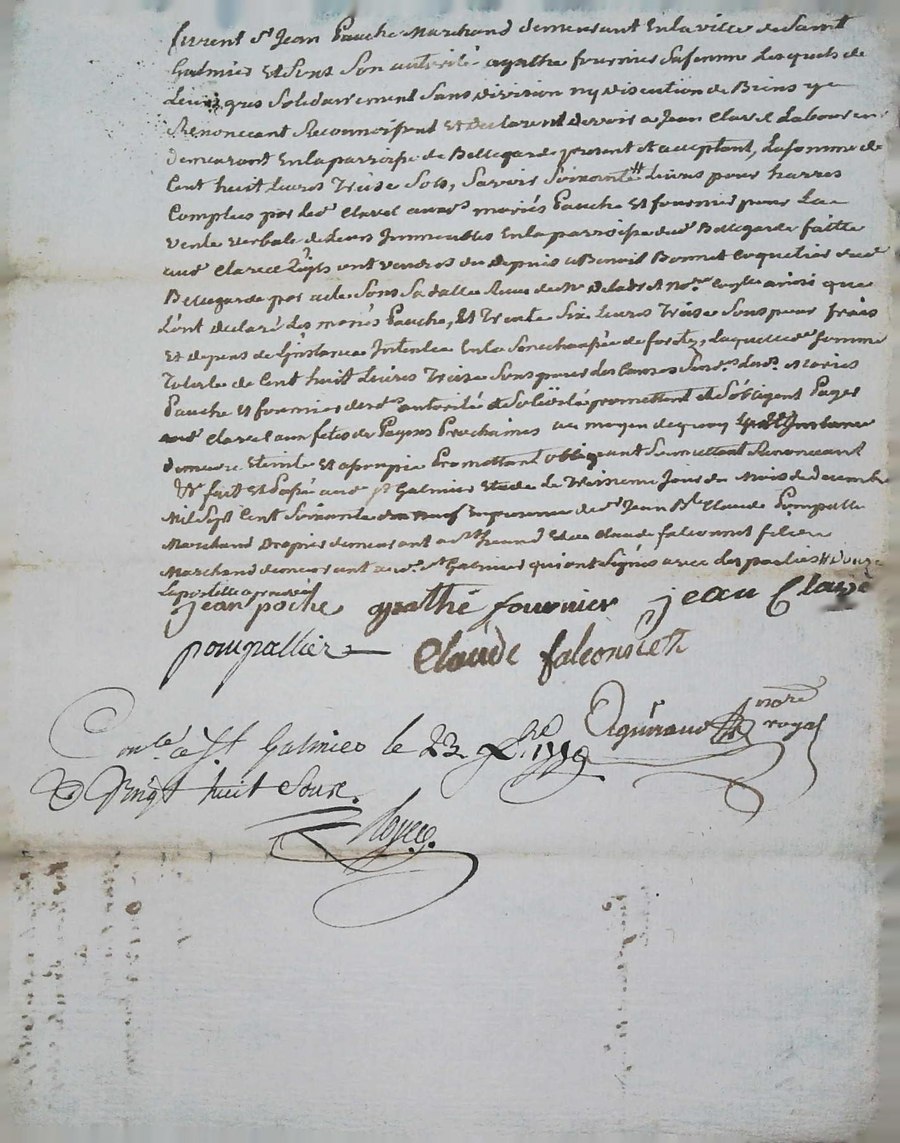 furent Sr Jean Pauche Marchand demeurant En la ville de Saint
Galmier Et Sous Son autorité agathe fournier Safemme Lesquels de
Leurs gres Solidairement Sans division ny discution de Biens y
Renonceant Reconnoissent Et declarent devoir a Jean Clavel Laboureur
demeurant En la parroisse de Bellegarde present et acceptant, La somme de
Cent huit Livres Treise Sols, Savoir Soixante Livres pour
Comptes par led. Clavel auxd. mariés Pauche Et fournier pour La
vente verbale de Leurs Immeubles En la parroisse dud. Bellegarde faitte
aud. Clavel ont vendus du depuis a Benoit Bonnet
Bellegarde par acte Sous Sa datte Reçu ainsi que
L'ont declaré Les mariés Pauche, Et Trente Six Livres Treise Sous pour frais
Et depens de L'instance Intentée En la Senechaussée de forêz, Laquelle somme
Totale de Cent huit Livres Treise Sous pour Les Causes Sus
Pauche Et fournier de autorité Et Solidité promettent Et S'obligent Payer
aud. Clavel aux fetes de Paques Prochaines au moyen de quoy Instance
demeure Eteinte Et Promettant obligeant Soumettant Renonceant
fait Et Passé aud. St Galmier Etude Le Treisieme Jour du Mois de decembre
Mil Sept Cent Soixante dix neuf En presence de Sr Jean Bte Claude Pompallier
Marchand Drapier demeurant a St Et de Claude falconnet
Marchand demeurant aud. St Galmier qui ont Signés avec Les parties
jean poche agathe fournier jean Clavel
pompallier Claude falconnett
nore
royal
Conlé a St Galmier le 23 Xbre 1779
R Vingt huit Sous.